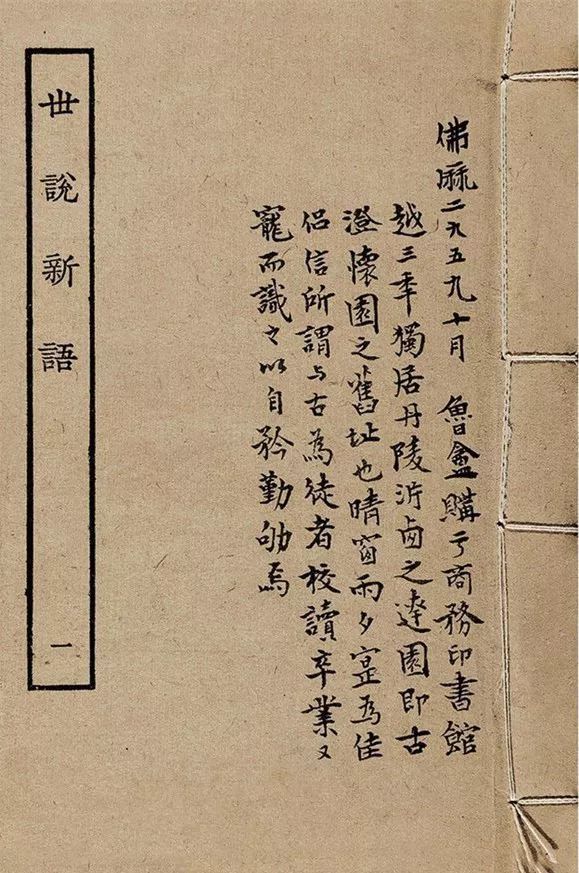 佛厤二九五九十月 魯盦購亏商務印書館
越三秊獨居丹陵沜卥之達園即古
澄懷園之舊址也晴窗雨夕寔為佳
侶信所謂与古為徒者校讀卒業又
寵而識之以自矜勤劬焉
世說新語 一